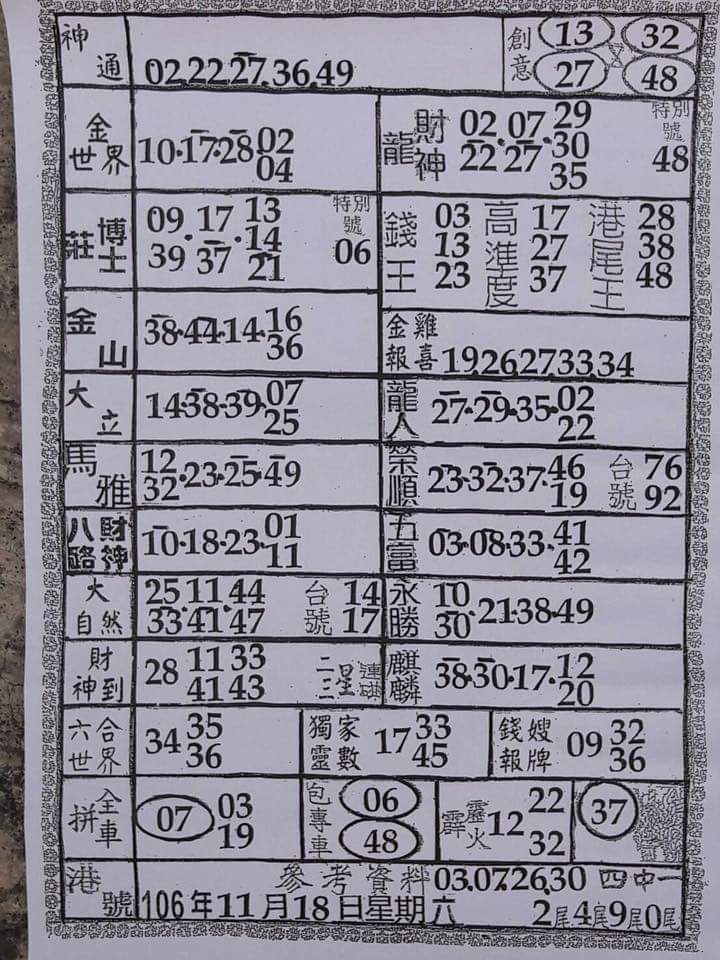 神通 02.22.27.36.49 創意 13 32
27 48
金世界 10.17.28.02
04
龍財神 02.07.29 特別號 48
22.27.30
35
莊博士 09.17.13 特別號 06
39.37.14
21
錢王 03 13 23 高進度 17 27 37 港尾王 28 38 48
金山 38.44.14.16
36
金雞報喜 19.26.27.33.34
大立 14.38.39.07
25
龍人 27.29.35.02
22
馬雅 12.23.25.49
32
榮順 23.32.37.46 台號 76
19 92
八路財神 10.18.23.01
11
五富 03.08.33.41
42
大自然 25.11.44 台號 14
33.41.47 17
永勝 10.21.38.49
30
財神到 28 11 33 二三星連碰
41 43
麒麟 38.30.17.12
20
六合世界 34 35
36
獨家靈數 17 33
45
錢嫂報牌 09 32
36
全車拼 07 03
19
包專車 06
48
霹靂火 12 22
32
37
港號 參考資料 03.07.26.30 四中一
106年11月18日星期六 2尾4尾9尾0尾